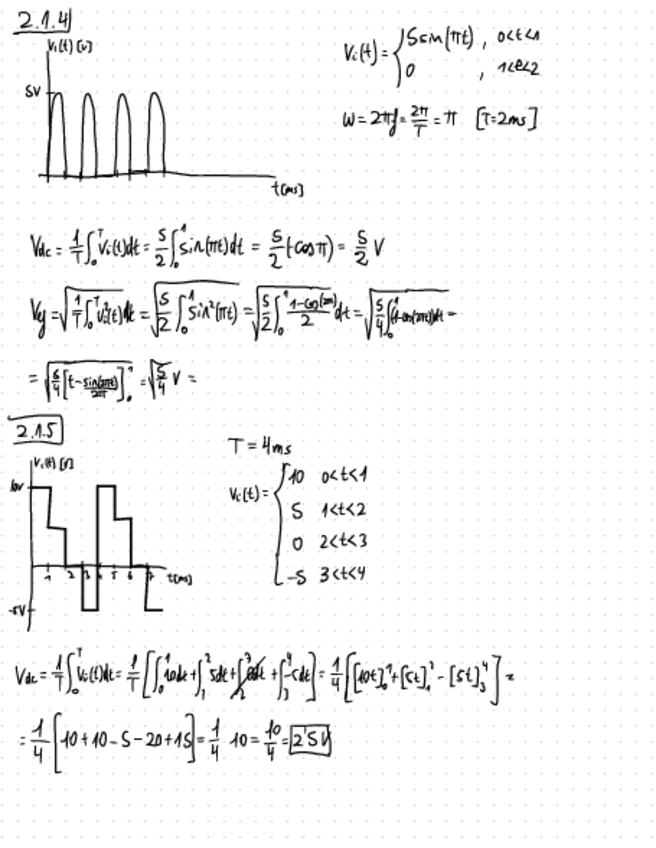 2.1.4
V₁(t) [V]
5V
t[ms]
Vᵢ(t) = { 5 sin(πt) , 0<t<1
0 , 1<t<2
W = 2πf = 2π/T = π [T=2ms]
Vdc = 1/T ∫₀ᵀ Vᵢ(t)dt = 5/2 ∫₀¹ sin(πt)dt = 5/2 (-cos π) = 5/2 V
Vef = √(1/T ∫₀ᵀ Vᵢ²(t) dt) = √(5/2 ∫₀¹ sin²(πt)) = √(5/2 ∫₀¹ (1-cos(2πt))/2 dt) = √(5/4 ∫₀¹ (1-cos(2πt))dt) =
= √(5/4 [t - sin(2πt)/2π]₀¹) = √(5/4) V =
2.1.5
Vᵢ(t) [V]
10V
1 2 3 4 5 6 7 t[ms]
-5V
T = 4ms
Vᵢ(t) = { 10 0<t<1
5 1<t<2
0 2<t<3
-5 3<t<4
Vdc = 1/T ∫₀ᵀ Vᵢ(t)dt = 1/T [∫₀¹ 10dt + ∫₁² 5dt + ∫₂³ 0dt + ∫₃⁴ -5dt] = 1/4 [[10t]₀¹ + [5t]₁² - [5t]₃⁴] =
= 1/4 [10+10-5-20+15] = 1/4 10 = 10/4 = 2'5V